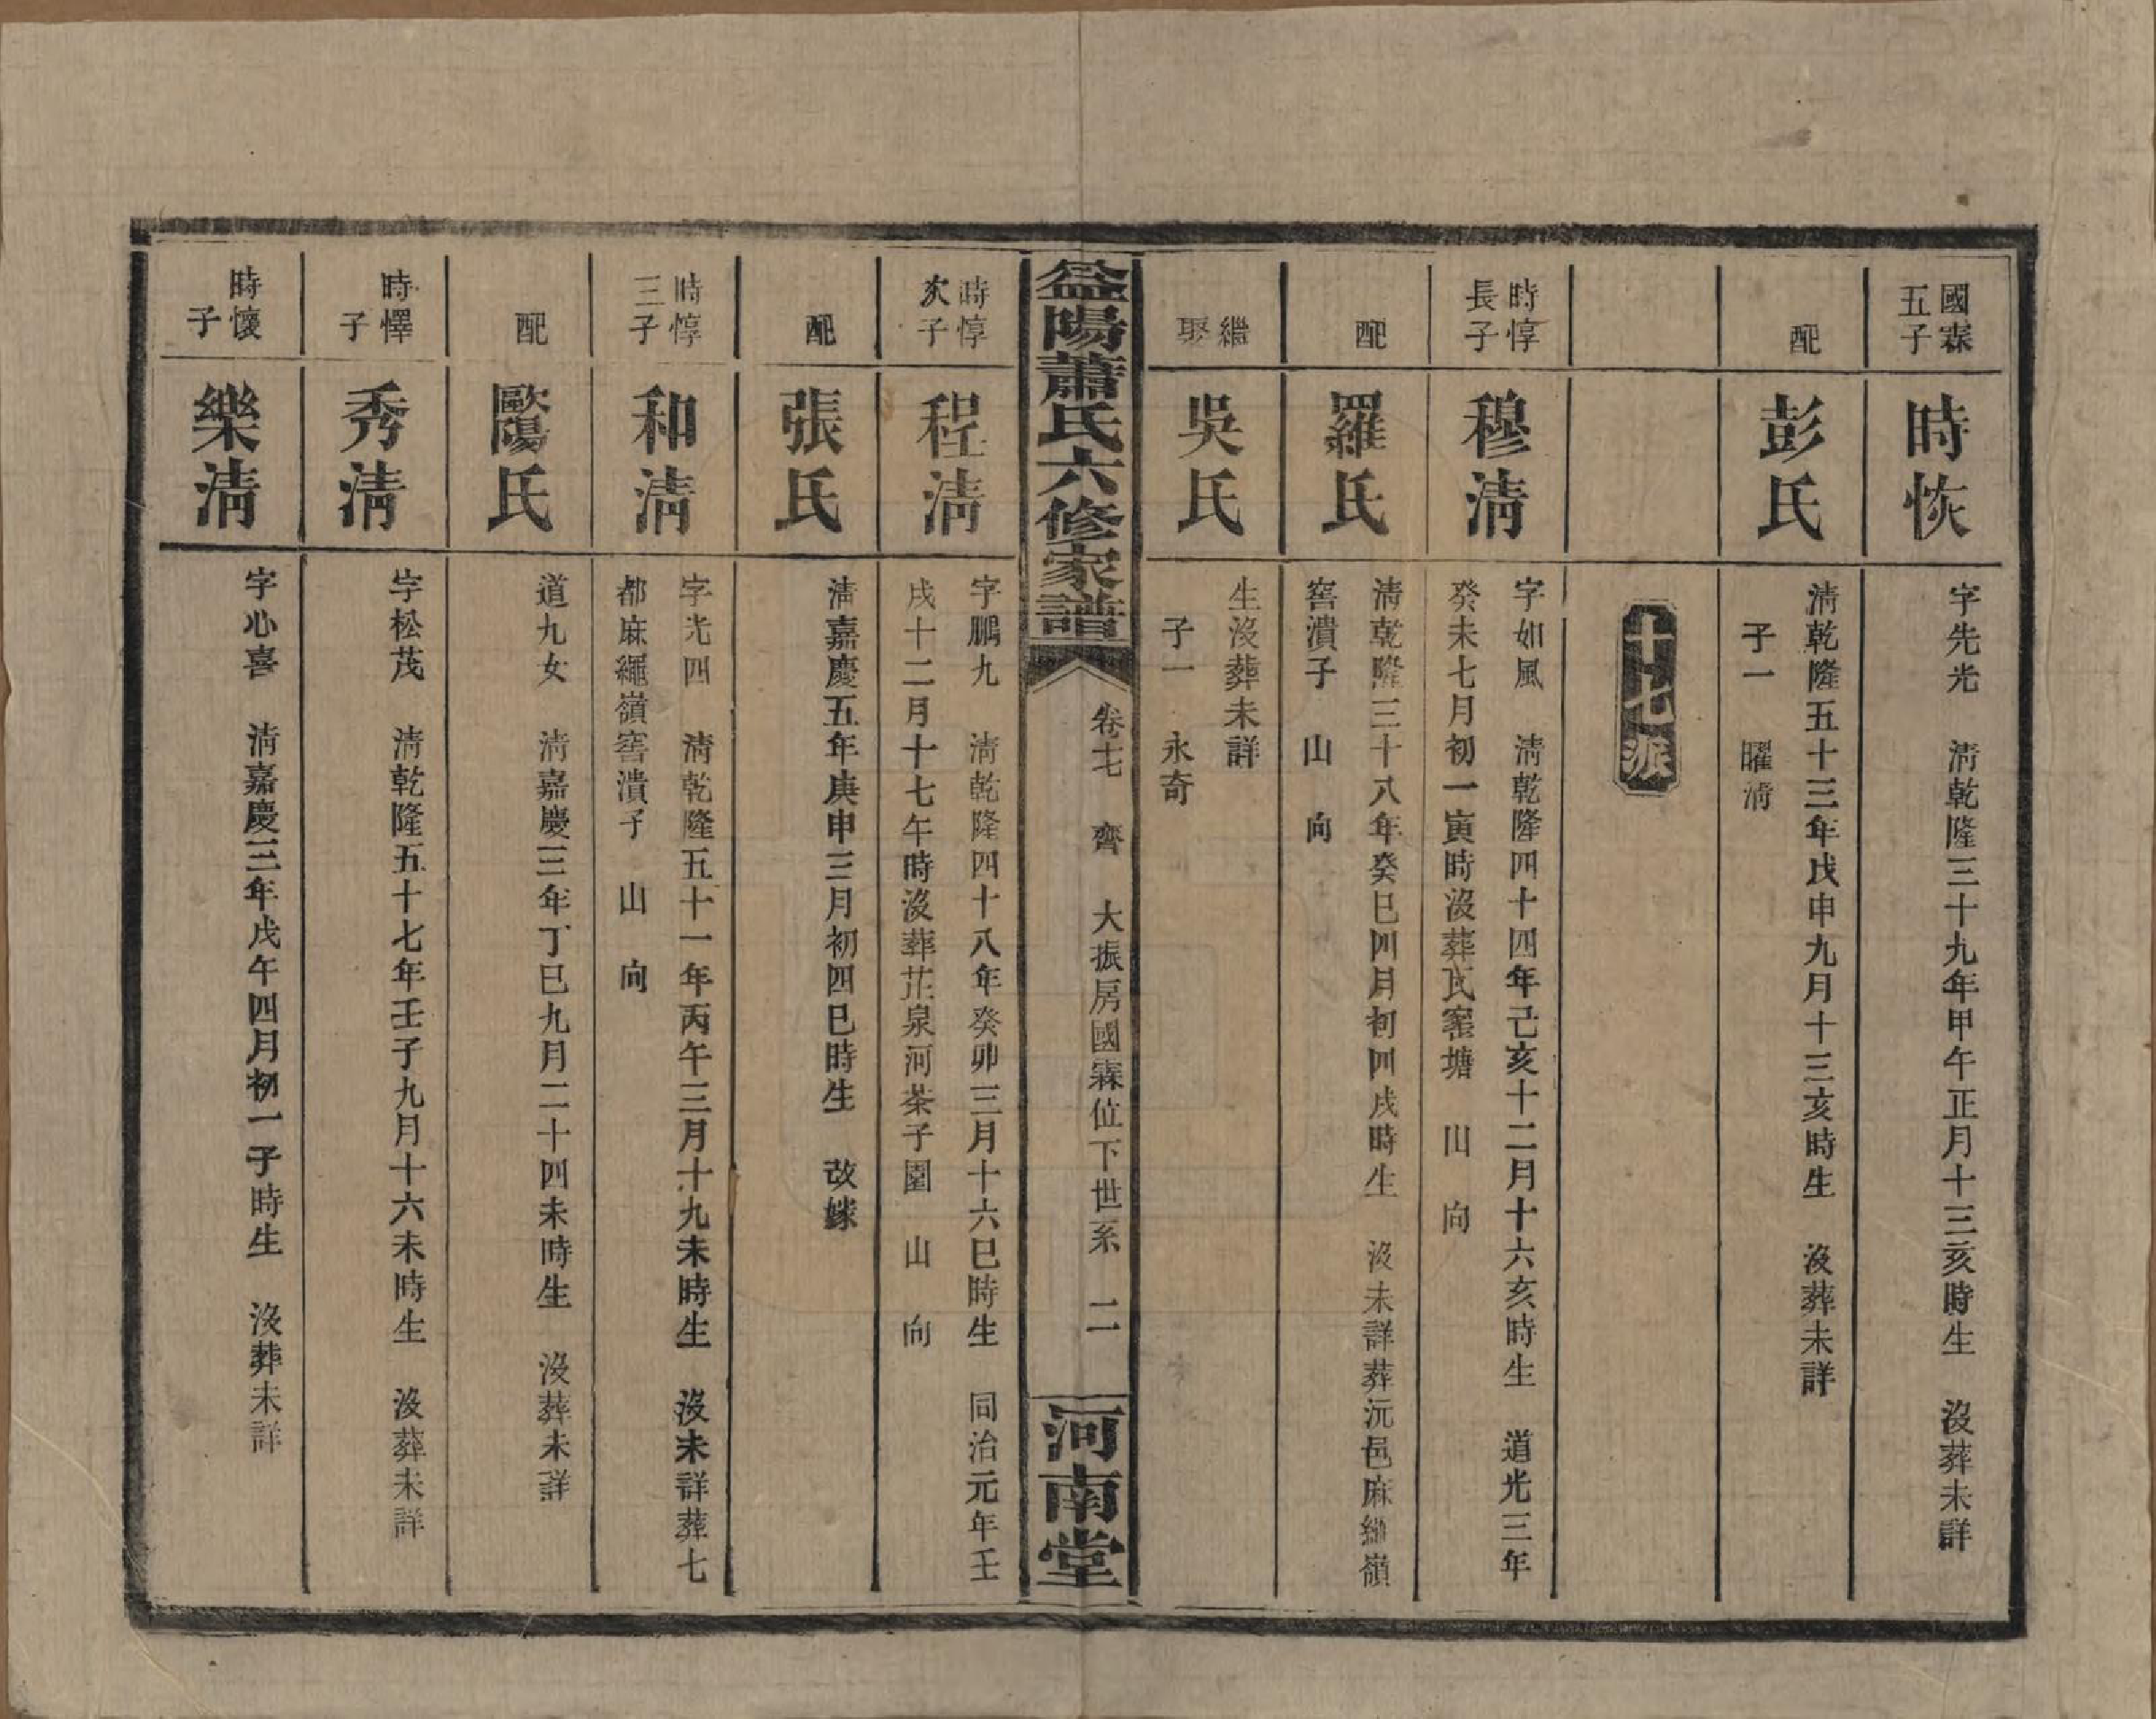 國霖
五子
時恢
字先光　清乾隆三十九年甲午正月十三亥時生　沒葬未詳
配
彭氏
清乾隆五十三年戊申九月十三亥時生　沒葬未詳
子一　曜清
十七派
時惇
長子
穆清
字如風　清乾隆四十四年己亥十二月十六亥時生　道光三年
癸未七月初一寅時沒葬瓦窰塘　山　向
配
羅氏
清乾隆三十八年癸巳四月初四戌時生　沒未詳葬沅邑麻繩嶺
窖潰子　山　向
繼
娶
吳氏
生沒葬未詳
子一　永奇
益陽蕭氏六修家譜
卷十七　齊　大振房國霖位下世系　二
河南堂
時惇
次子
程清
字鵬九　清乾隆四十八年癸卯三月十六巳時生　同治元年壬
戌十二月十七午時沒葬茈泉河茶子園　山　向
配
張氏
清嘉慶五年庚申三月初四巳時生　改嫁
時惇
三子
和清
字光四　清乾隆五十一年丙午三月十九未時生　沒未詳葬七
都麻繩嶺窖潰子　山　向
配
歐陽氏
道九女　清嘉慶三年丁巳九月二十四未時生　沒葬未詳
時懌
子
秀清
字松茂　清乾隆五十七年壬子九月十六未時生　沒葬未詳
時懷
子
樂清
字心喜　清嘉慶三年戊午四月初一子時生　沒葬未詳